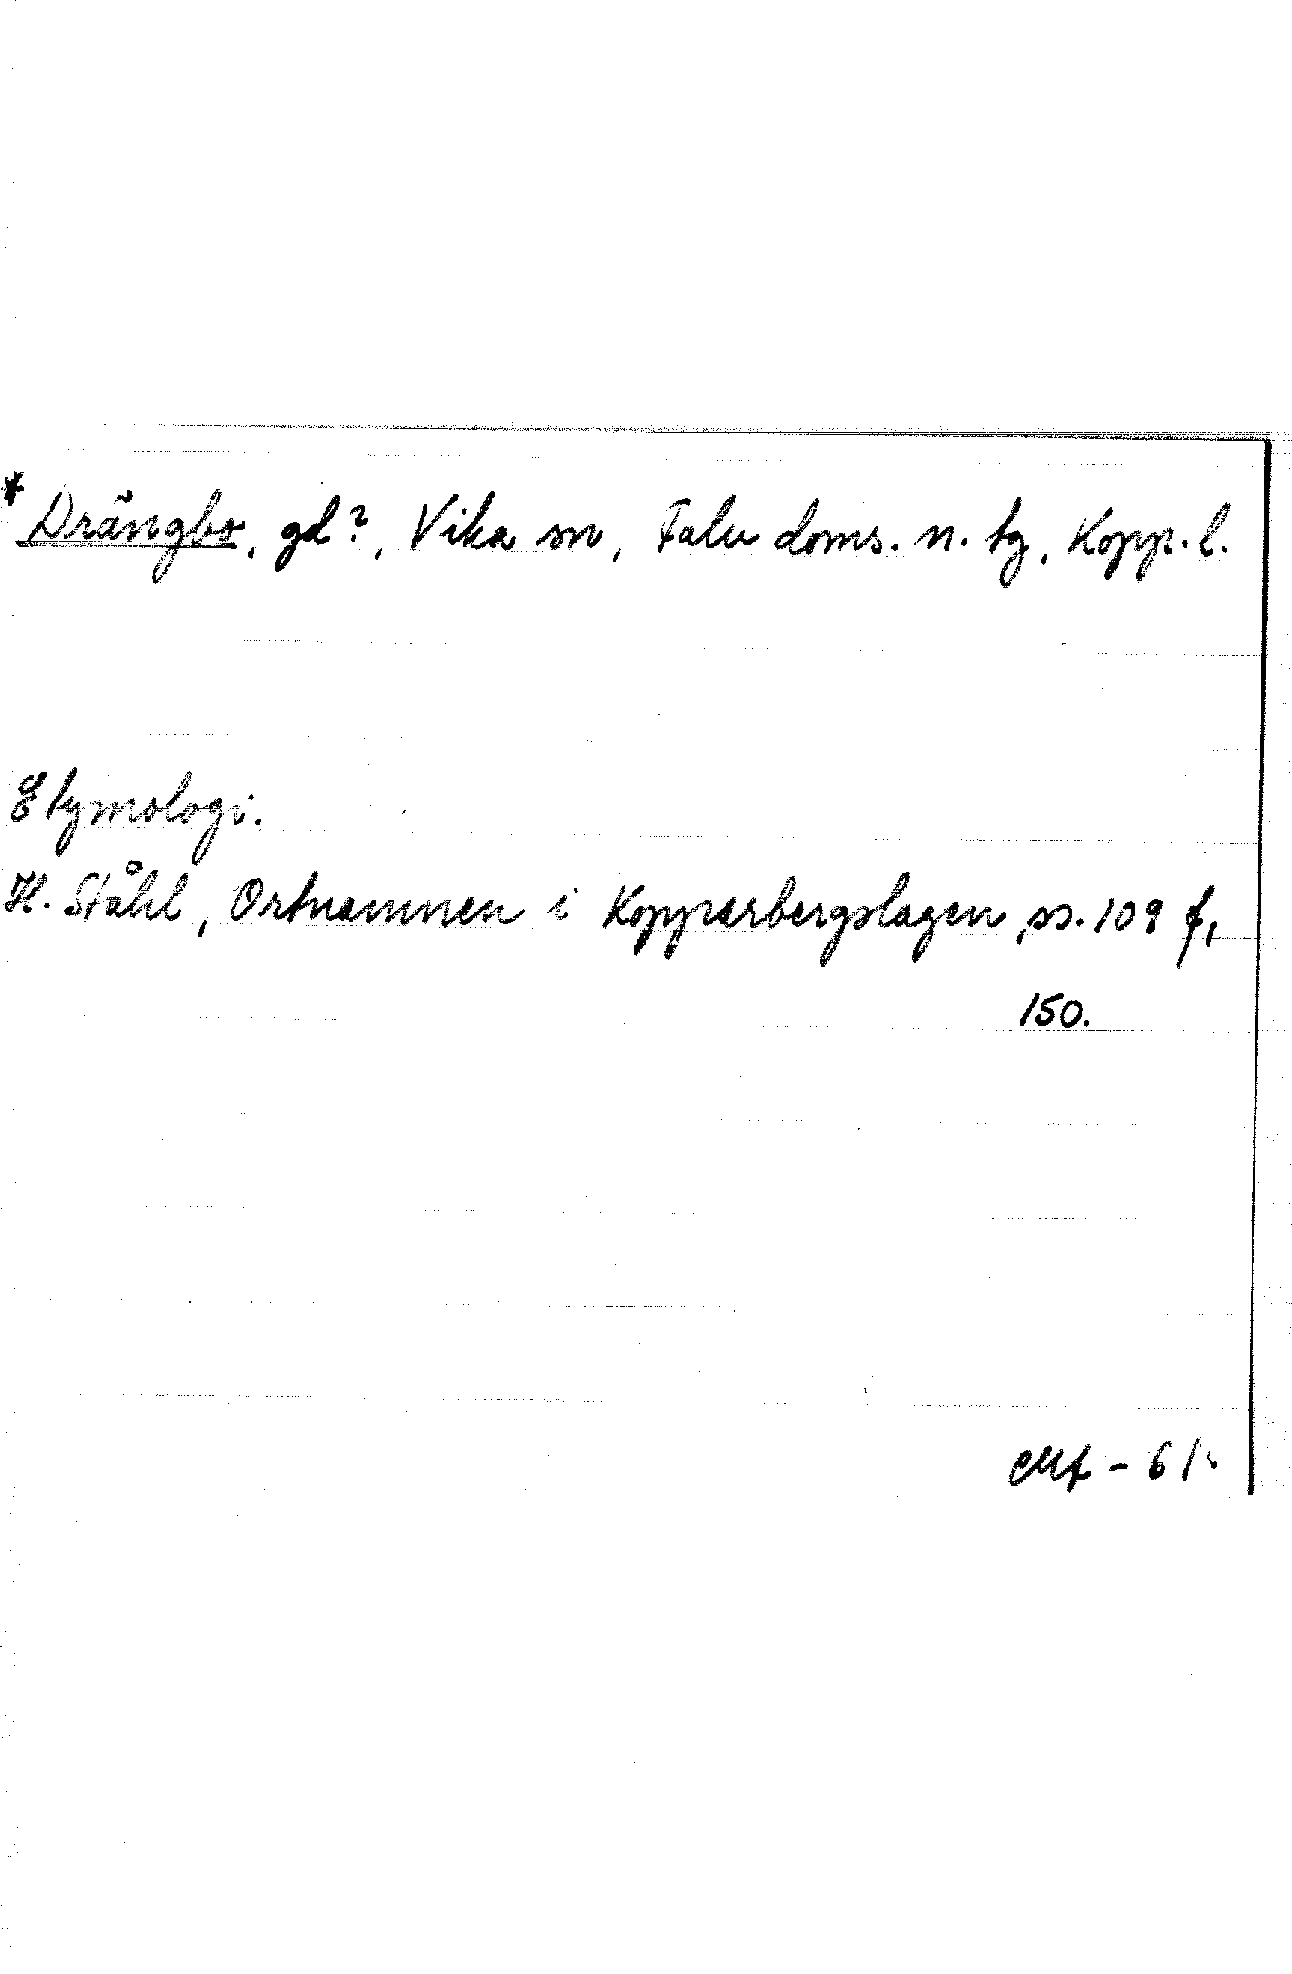 * Drängbo, gd?, Vika sn, Falu doms. n. tg, Kopp. l.
Etymologi.
H. Ståhl, Ortnamnen i Kopparbergslagen, ss. 109 f,
150.
- 61.